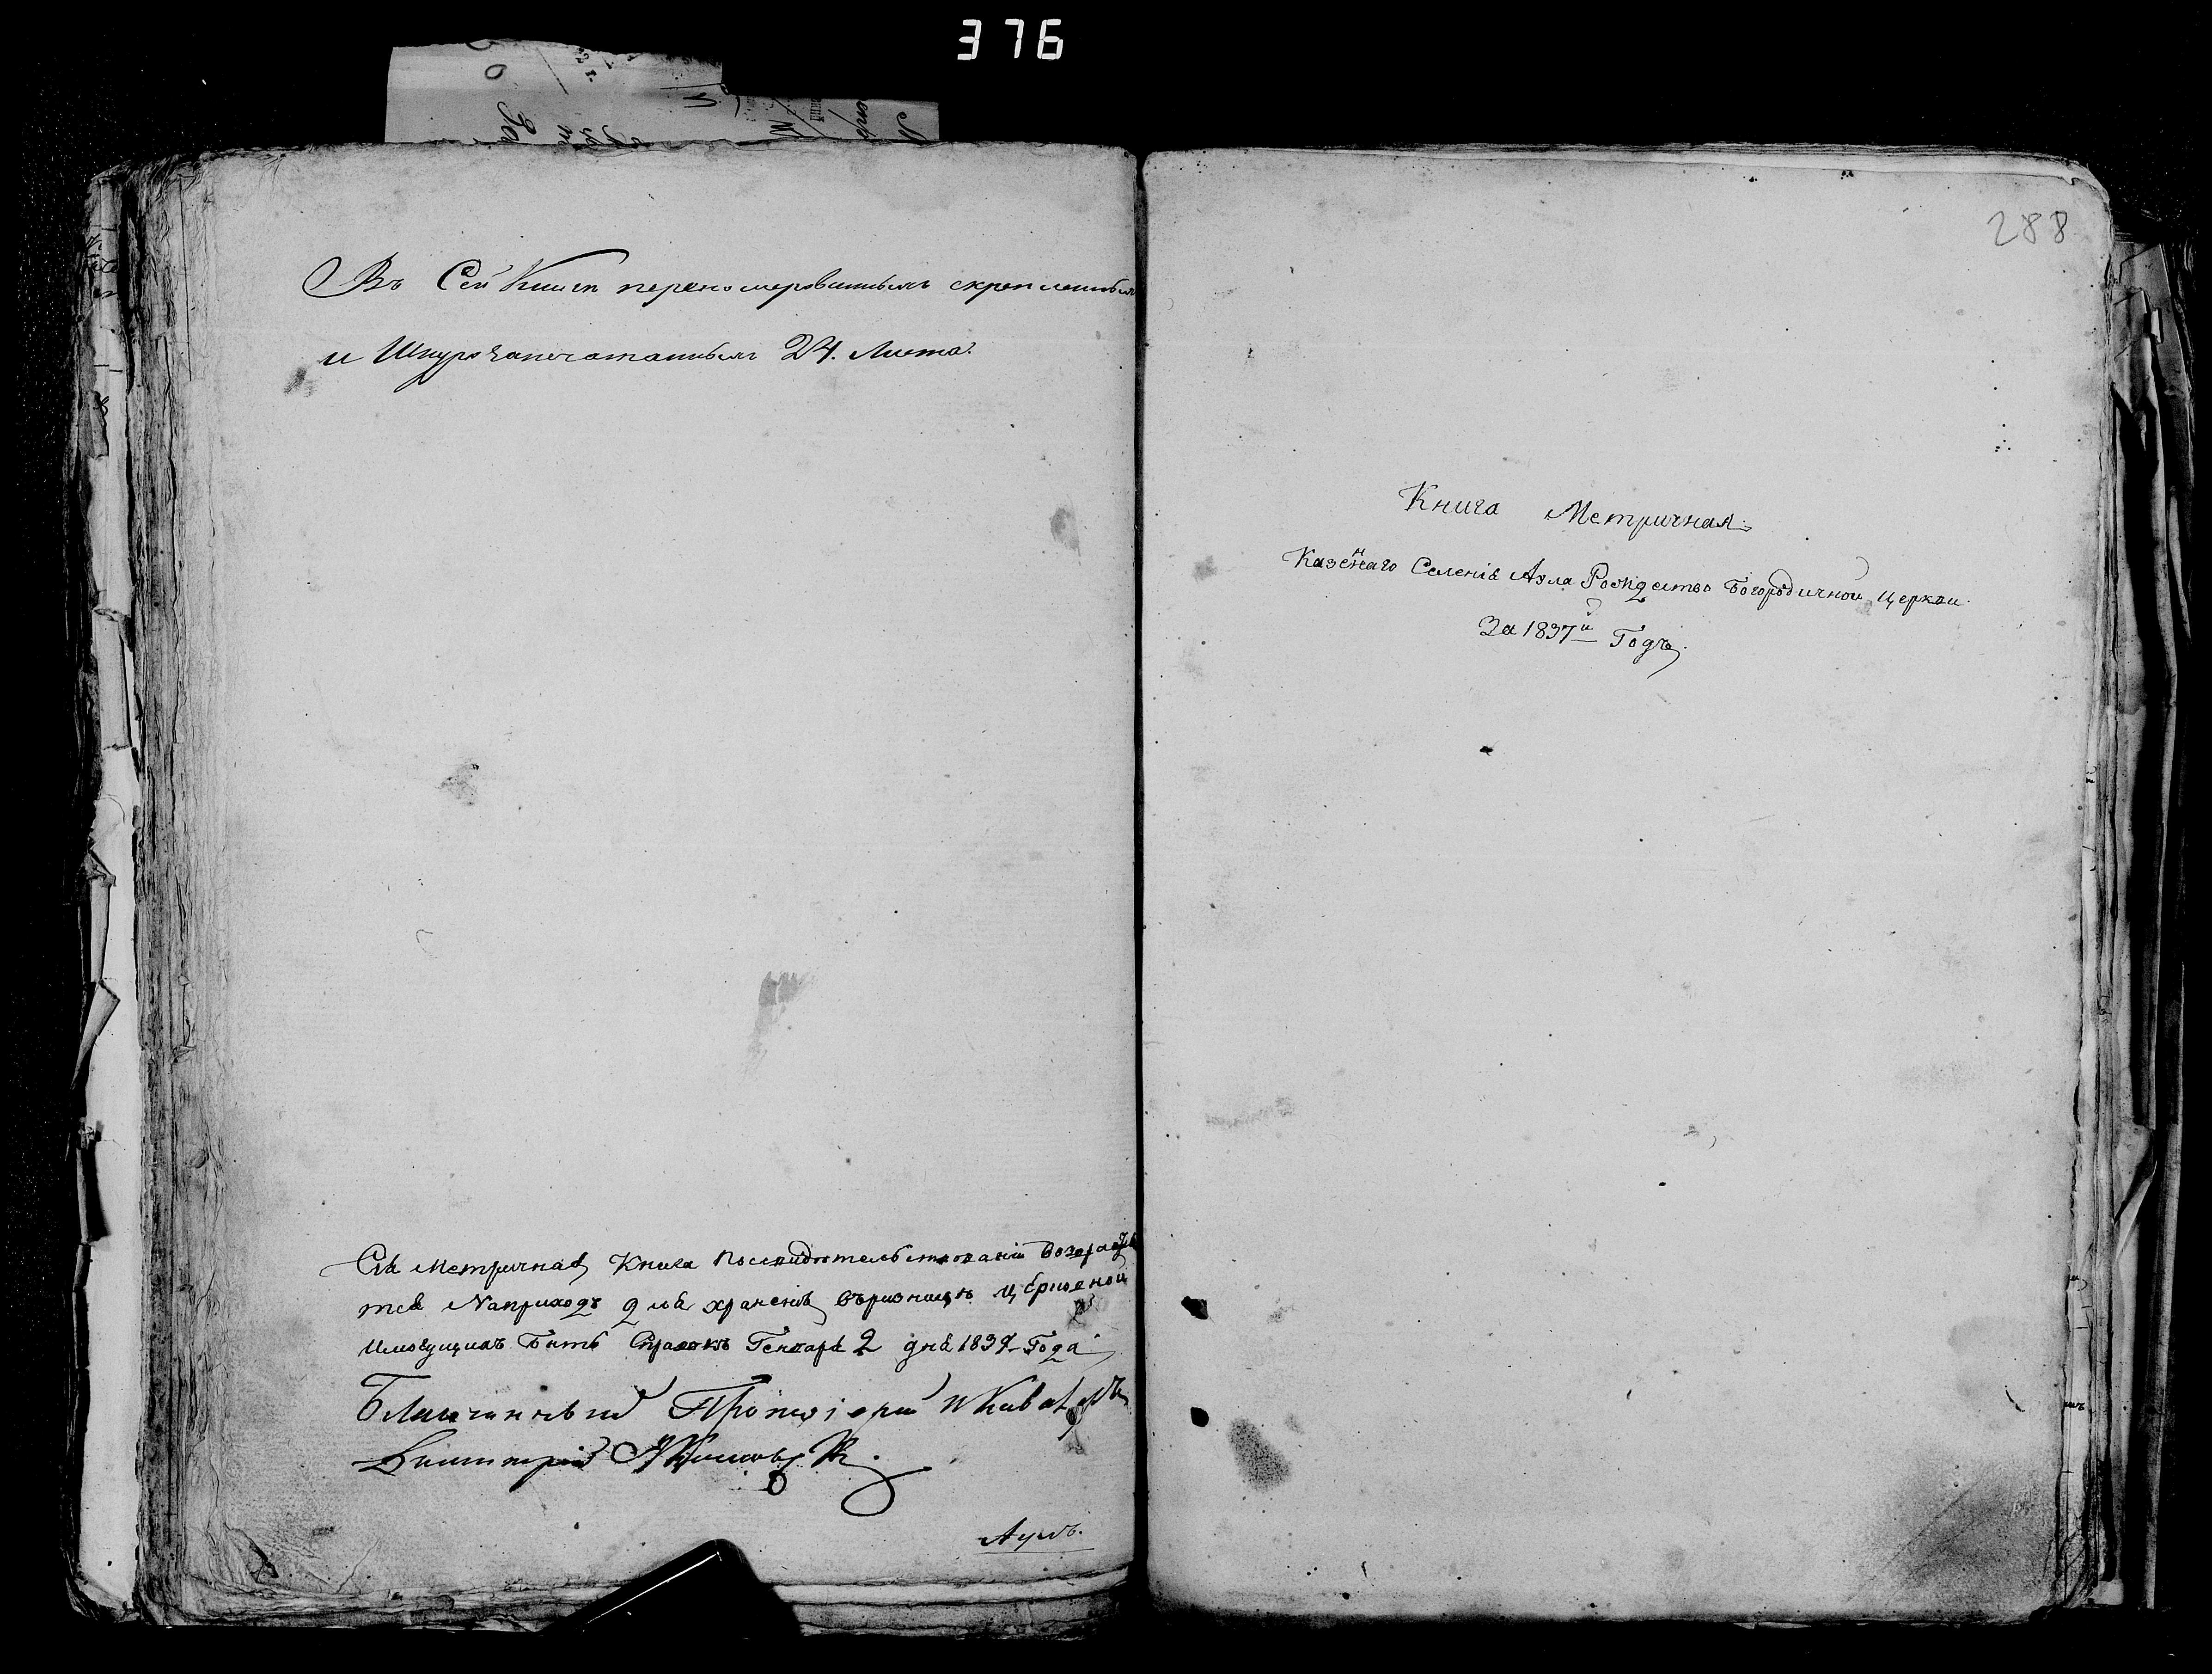 376
Въ Сей Книгѣ переномерованныхъ скрепленныхъ
и Шнурозапечатанныхъ 24. Листа.
Сія Метричная Книга Посвидѣтельствованіи возвращае
тся Наприходъ для храненія въризницѣ церковной
имѣющихъ Быть Справокъ Генваря 2 дня 1839 Года
Благочинный Протоіерей и Кавалеръ
Димитрій
Аулъ.
288
Книга Метричная
Казеннаго Селенія Аула Рождество Богородичной церкви
За 1837й Годъ.